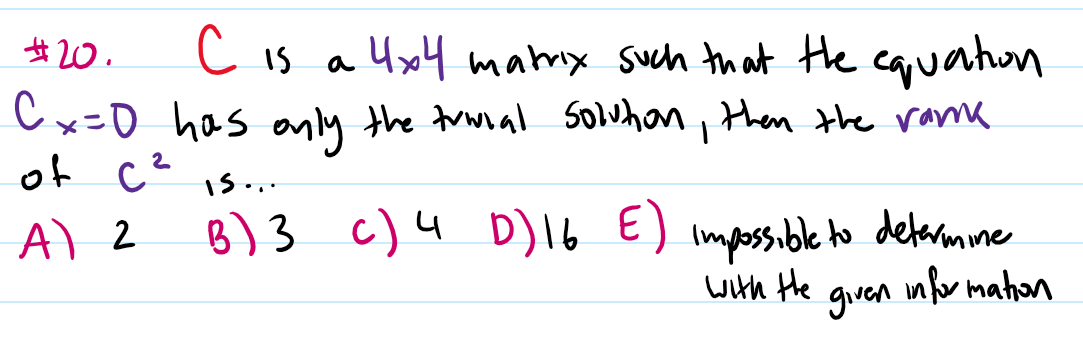 #20. C is a 4x4 matrix such that the equation
Cx=0 has only the trivial solution, then the rank
of C² is...
A) 2 B) 3 C) 4 D) 16 E) impossible to determine
with the given information